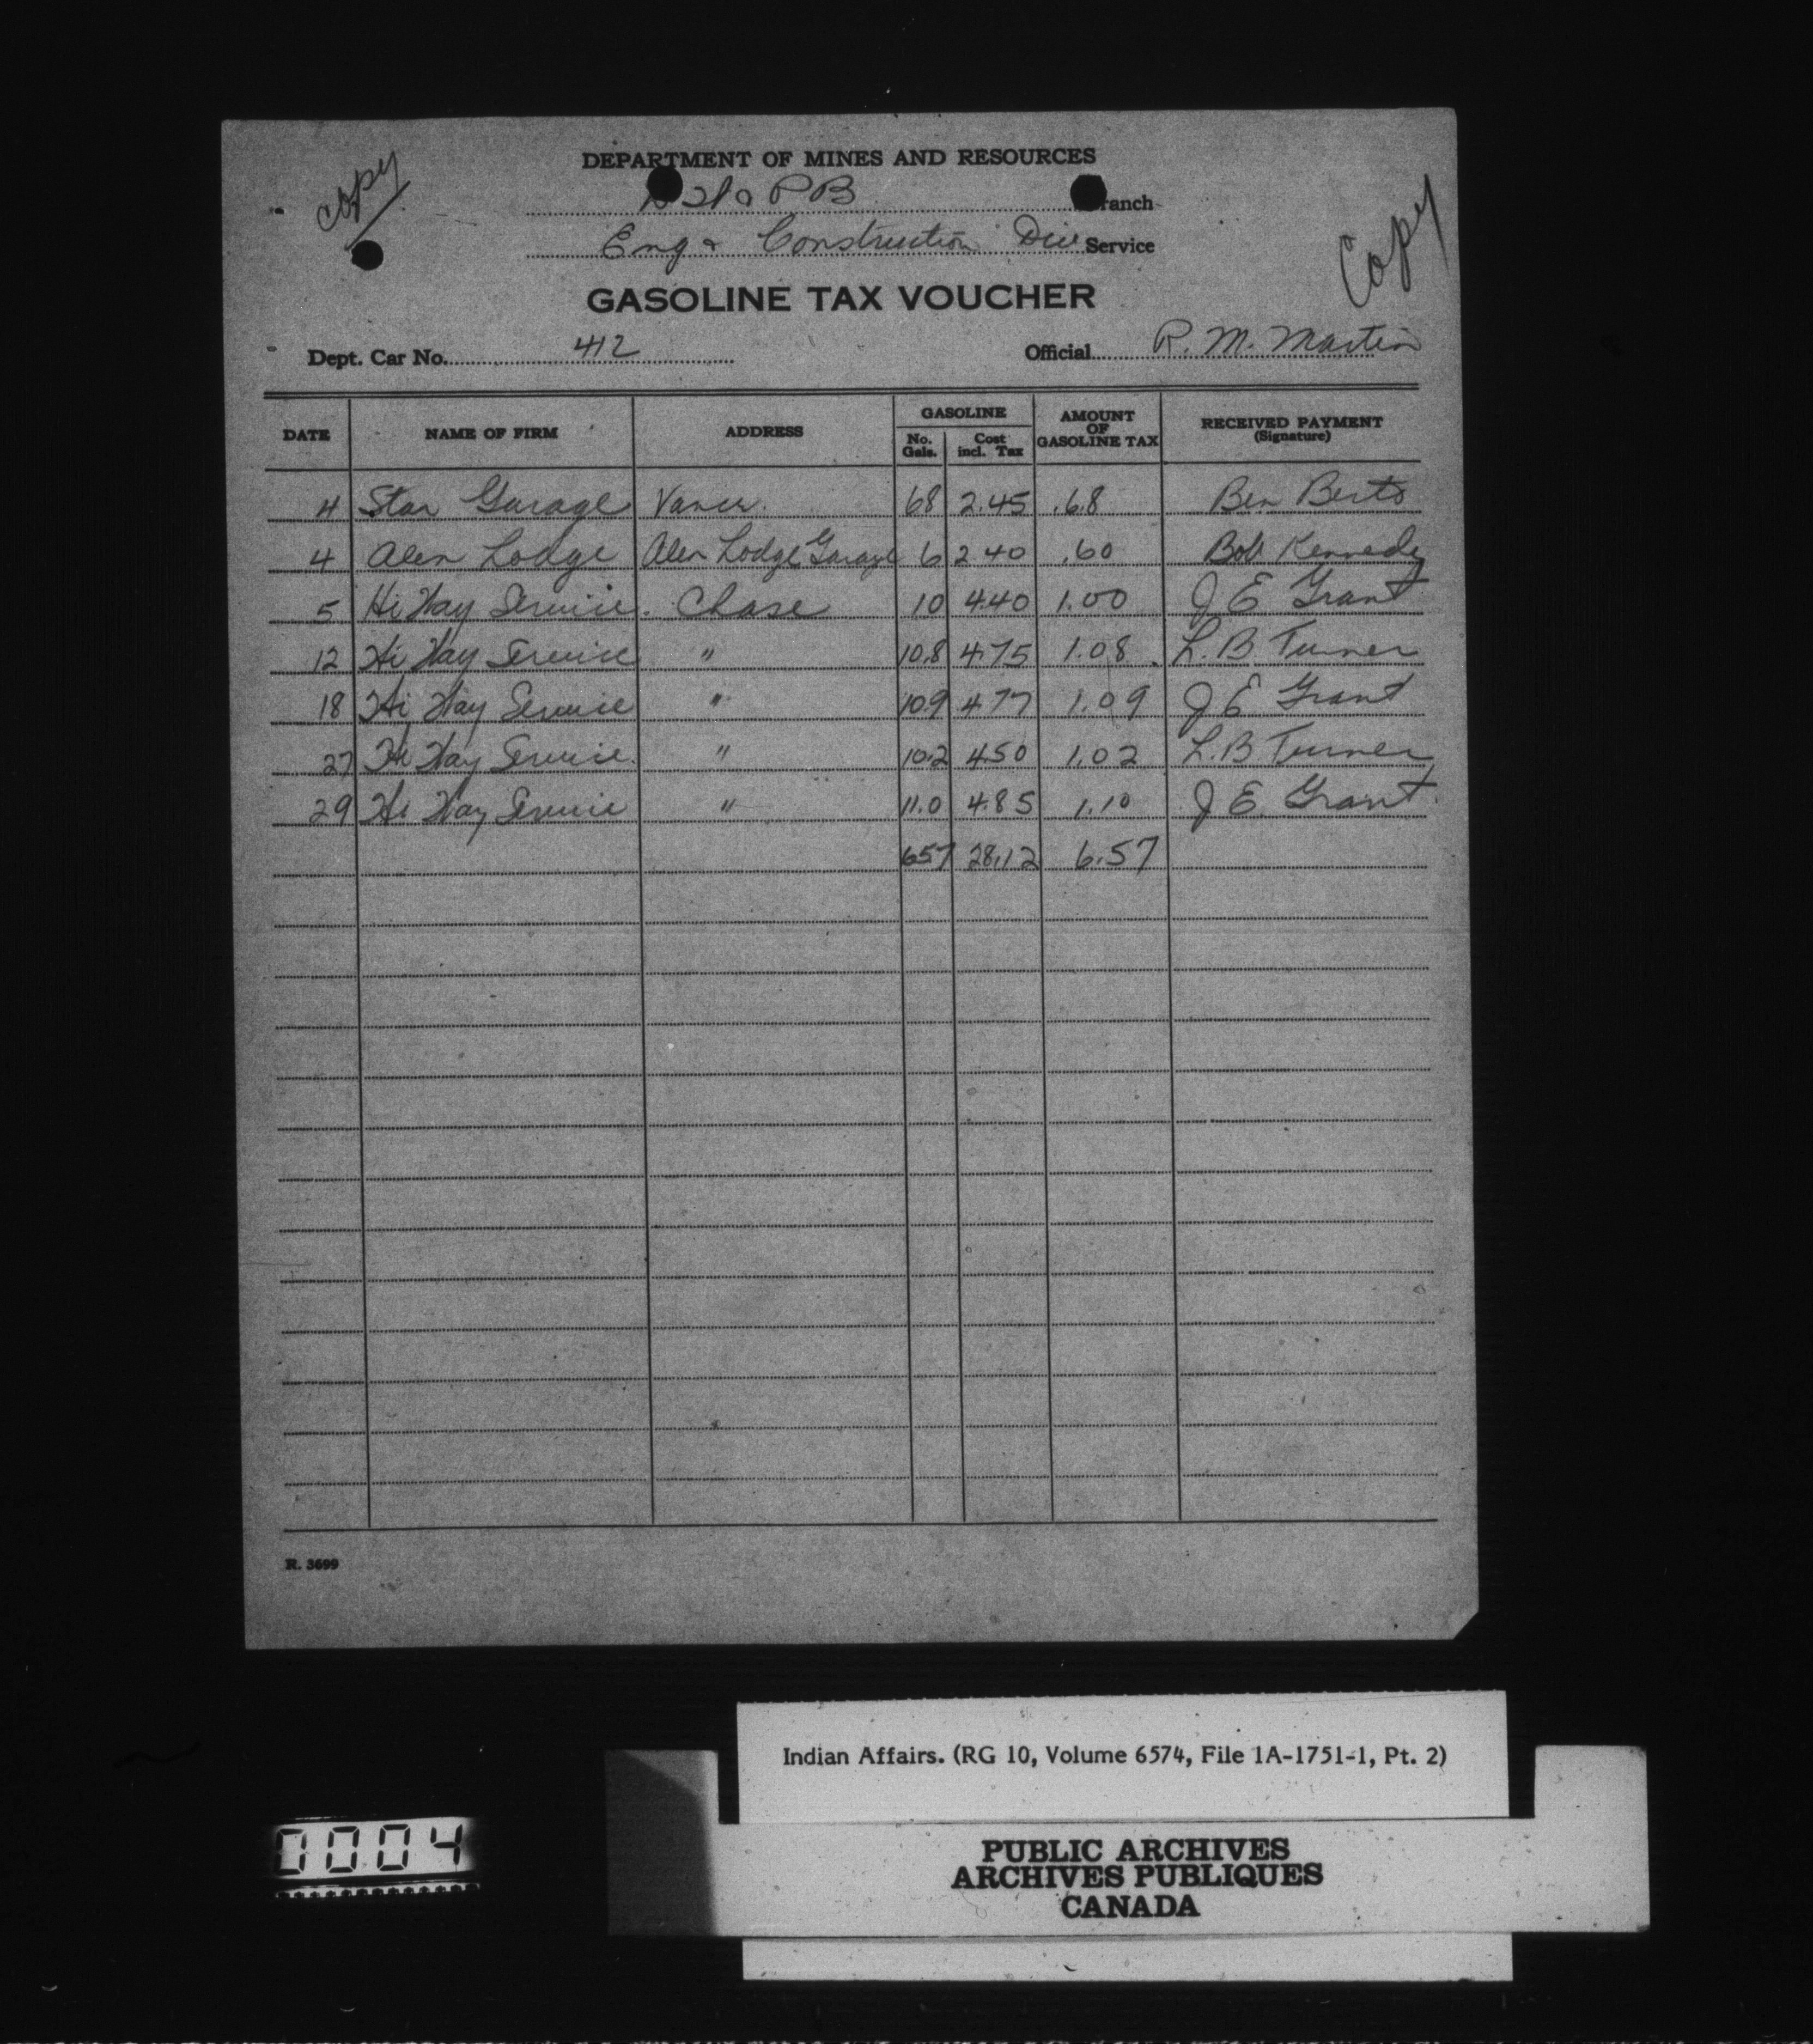 Copy
DEPARTMENT OF MINES AND RESOURCES
PB Branch
Eng & Construction Div Service
Copy
GASOLINE TAX VOUCHER
Dept. Car No. 412 Official R. M. Martin
DATE NAME OF FIRM ADDRESS GASOLINE No. Gals. Cost incl. Tax AMOUNT OF GASOLINE TAX RECEIVED PAYMENT (Signature)
4 Star Garage Vancr. 68 2.45 .68 Ben
4 Alex Lodge Alex Lodge Garage 6 2.40 .60 Bob Kennedy
5 Hi Way Service. Chase 10 4.40 1.00 J E Grant
12 Hi Way Service " 10.8 4.75 1.08 L. B. Turner
18 Hi Way Service " 10.9 4.77 1.09 J E Grant
27 Hi Way Service. " 10.2 4.50 1.02 L. B Turner
29 Hi Way Service " 11.0 4.85 1.10 J E. Grant
657 28.12 6.57
R. 3699
Indian Affairs. (RG 10, Volume 6574, File 1A-1751-1, Pt. 2)
0004
PUBLIC ARCHIVES
ARCHIVES PUBLIQUES
CANADA